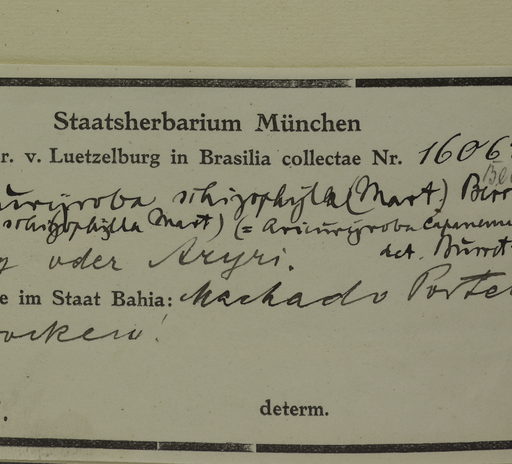 Staatsherbarium München
r. v. Luetzelburg in Brasilia collectae Nr. 1606
schizophylla (Mart.) Burr
schizophylla Mart) (= Aricuryroba Capanemae
oder Aryri. det. Burret
e im Staat Bahia: Machado Porte
ocken!
determ.